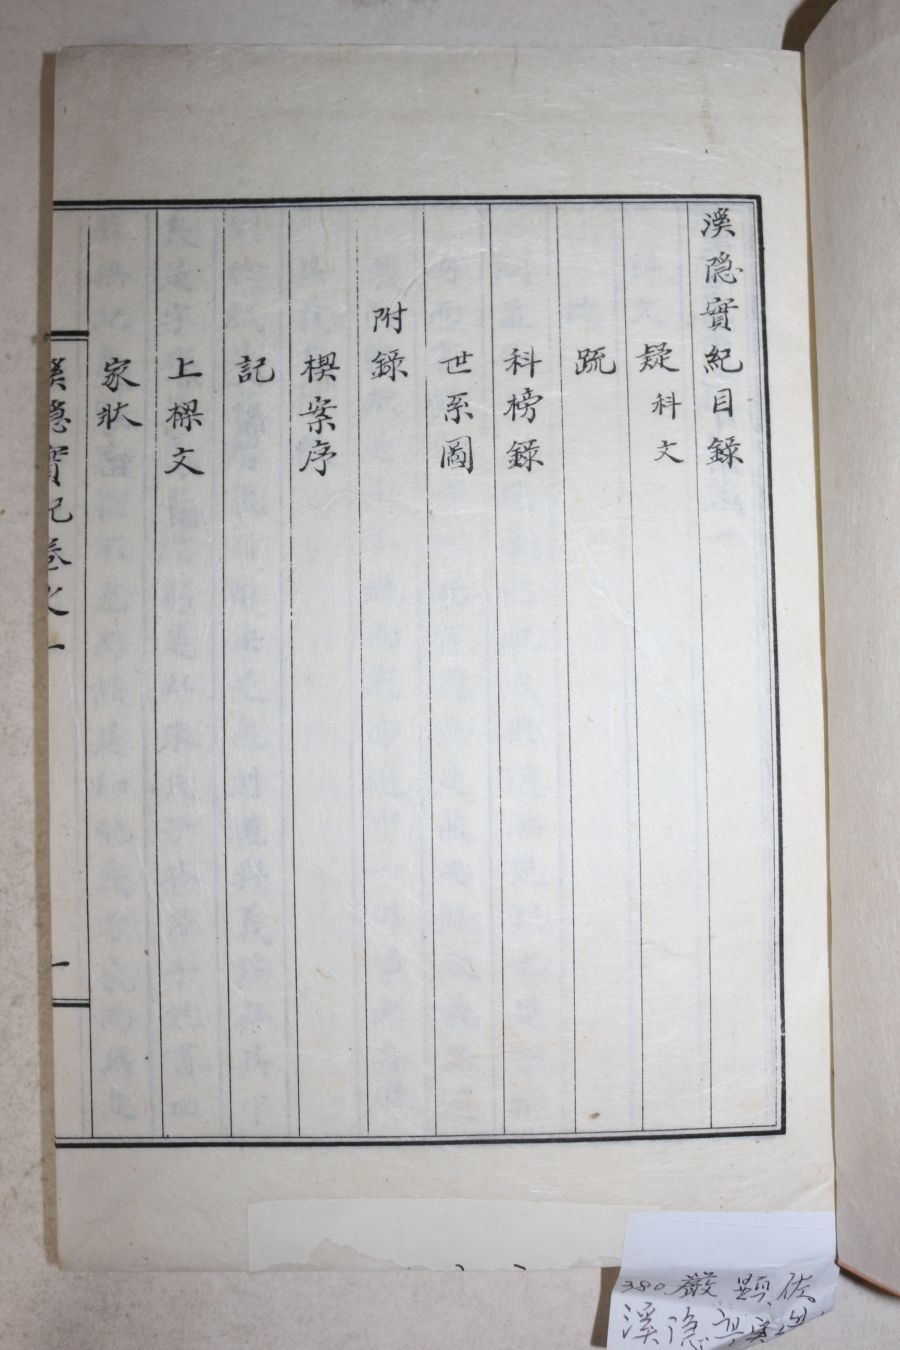 溪隐實紀目錄
疑科文
䟽
科榜錄
世系圖
附錄
楔案序
記
上樑文
家狀
溪隐實紀卷之一
一
380. 嚴顯
溪隐